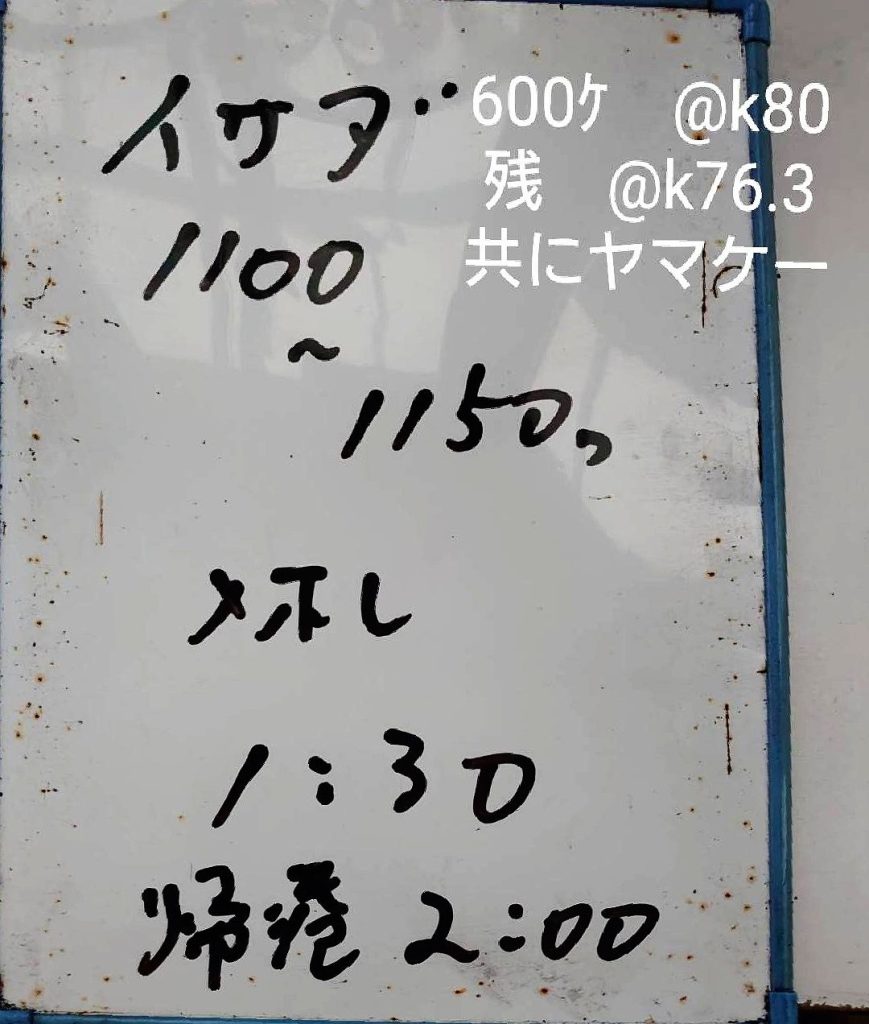 イサダ
600ヶ @k80
残 @k76.3
共にヤマケー
1100
~
1150コ
メ木し
1:30
帰港 2:00